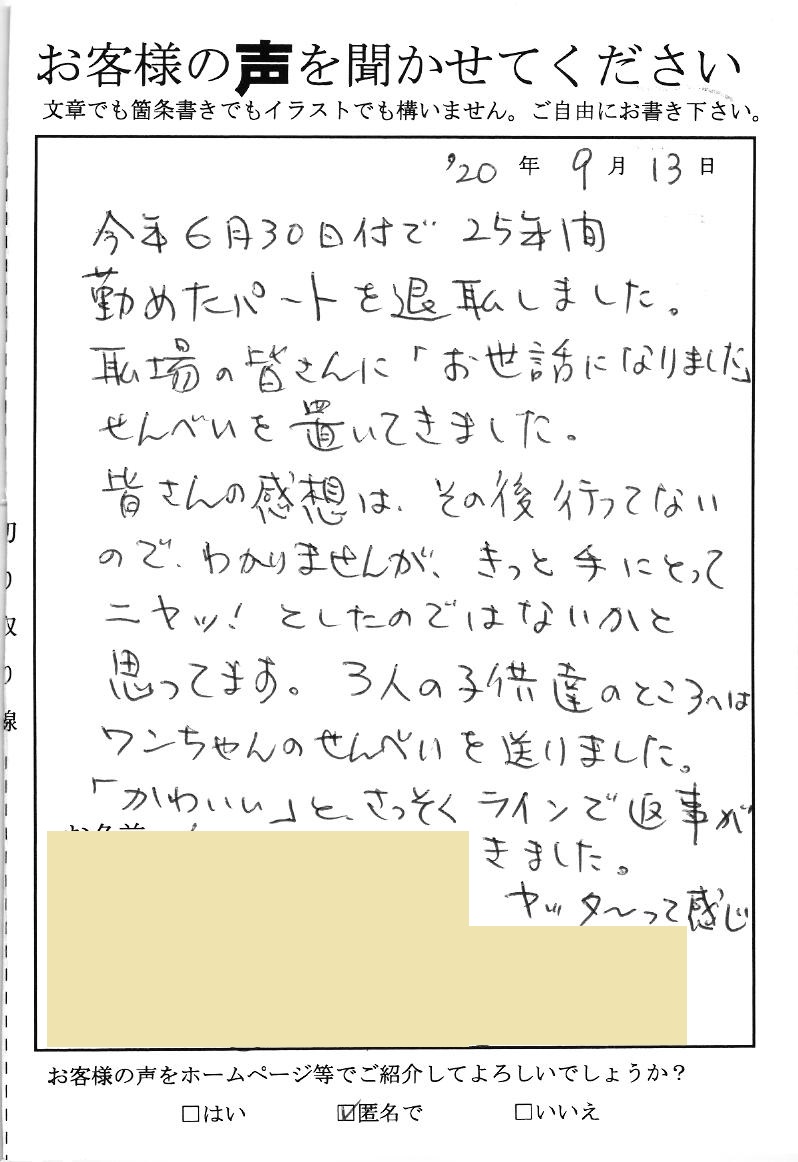 お客様の声を聞かせてください
文章でも箇条書きでもイラストでも構いません。ご自由にお書き下さい。
'20 年 9 月 13 日
今年6月30日付で 25年間
勤めたパートを退職しました。
職場の皆さんに「お世話になりました」
せんべいを置いてきました。
皆さんの感想は、その後行ってない
ので、わかりませんが、きっと手にとって
ニヤッ! としたのではないかと
思ってます。3人の子供達のところへは
ワンちゃんのせんべいを送りました。
「かわいい」と、さっそくラインで返事が
きました。
ヤッタ〜って感じ
切り取り線
お客様の声をホームページ等でご紹介してよろしいでしょうか?
□はい ☑匿名で □いいえ